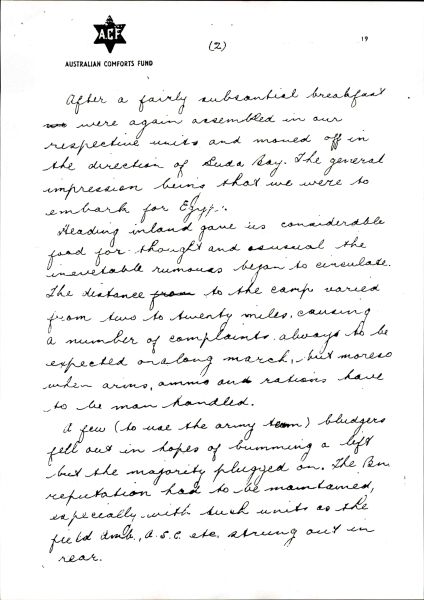 A.C.F.
(2)
19
AUSTRALIAN COMFORTS FUND
After a fairly substantial breakfast
were again assembled in our
respective units and moved off in
the direction of Suda Bay. The general
impression being that we were to
embark for Egypt.
Heading inland gave us considerable
food for thought and as usual the
inevetable rumours began to circulate.
The distance from to the camp varied
from two to twenty miles, causing
a number of complaints always to be
expected on a long march, but moreso
when arms, ammo and rations have
to be man handled.
A few (to use the army term) bludgers
fell out in hopes of bumming a lift
but the majority plugged on. The Bn
reputation had to be maintained,
especially with such units as the
field amb, A.S.C. etc. strung out in
rear.